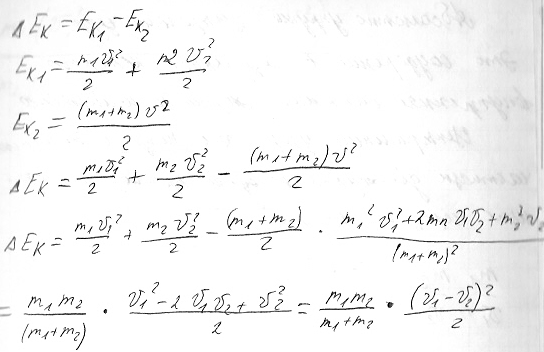 ΔEK = EK1 - EK2
EK1 = m1υ1²/2 + m2υ2²/2
EK2 = (m1+m2)υ2/2
ΔEK = m1υ1²/2 + m2υ2²/2 - (m1+m2)υ²/2
ΔEK = m1υ1²/2 + m2υ2²/2 - (m1+m2)/2 · m1²υ1²+2mnυ1υ2+m2²υ2/(m1+m2)²
= m1m2/(m1+m2) · υ1²-2υ1υ2+υ2²/2 = m1m2/m1+m2 · (υ1-υ2)²/2